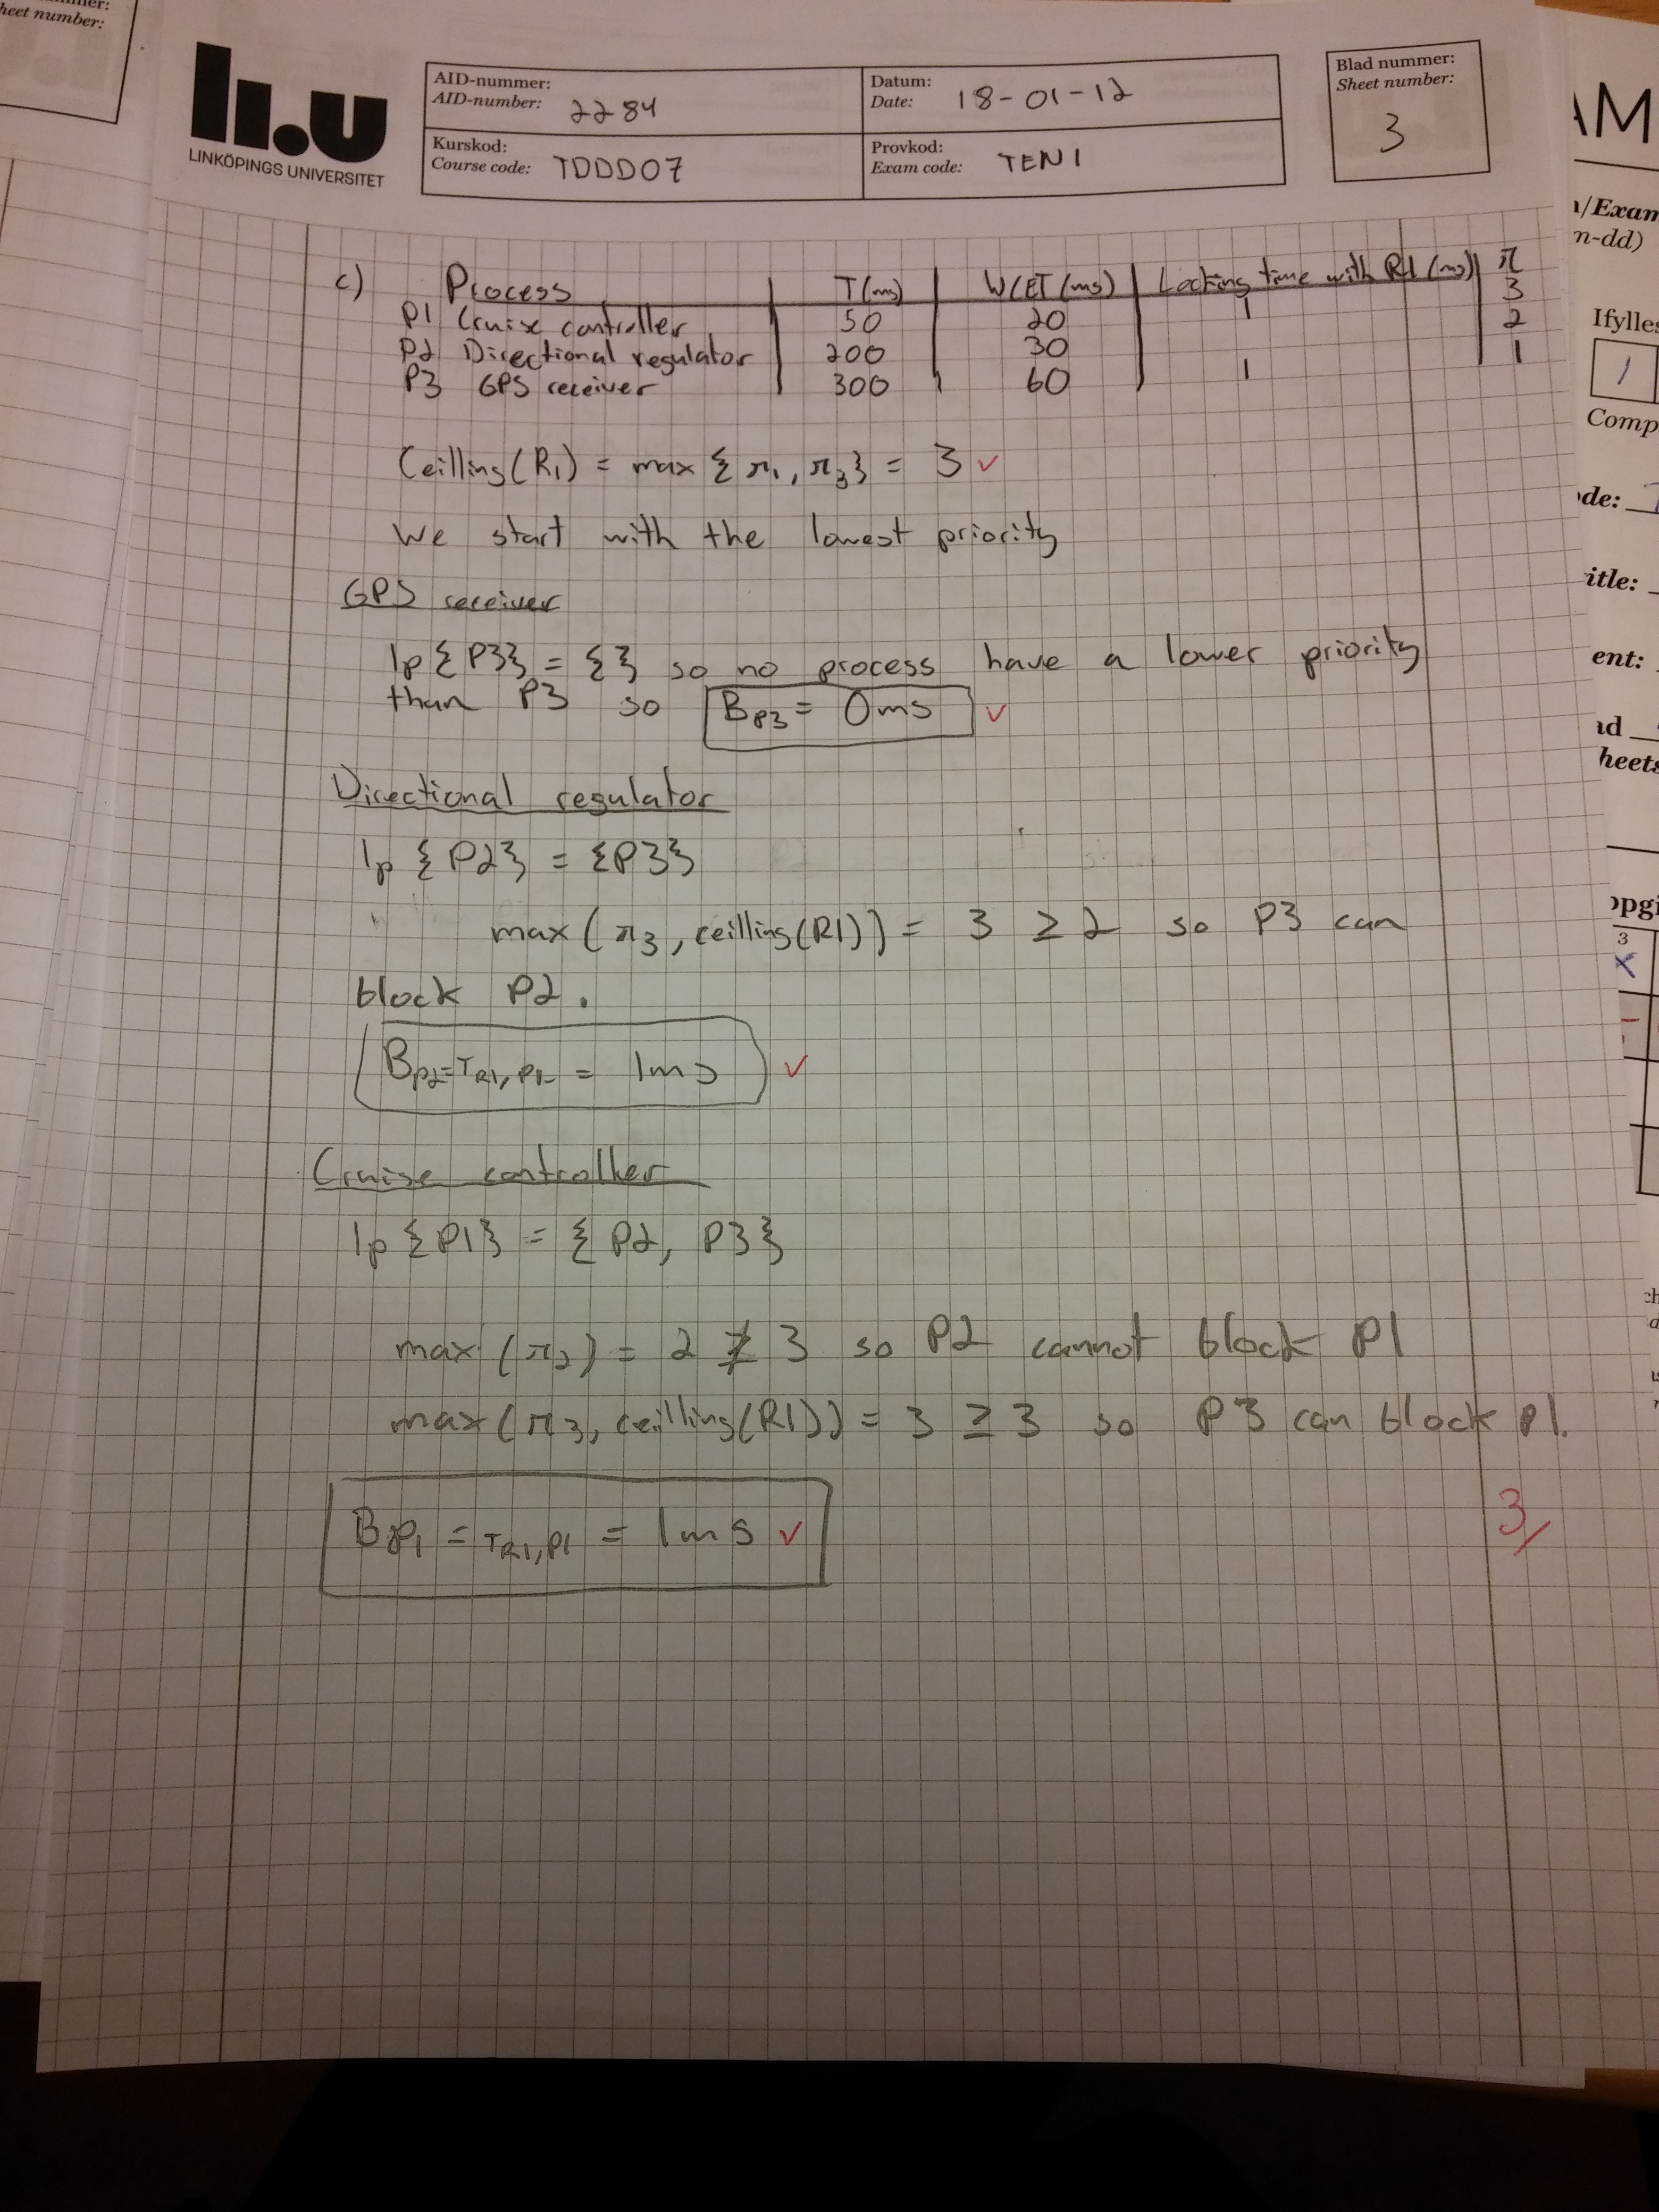 heet number:
LINKÖPINGS UNIVERSITET
AID-nummer:
AID-number: 2284
Datum:
Date: 18-01-12
Blad nummer:
Sheet number:
3
Kurskod:
Course code: TDDD07
Provkod:
Exam code: TEN1
AM
/Exam
n-dd)
Ifylles
1
Comp
de:
itle:
ent:
ad
heets
ppgi
3
X
c) Process T(ms) WCET (ms) Locking time with R1 (ms) π
P1 Cruise controller 50 20 1 3
P2 Directional regulator 200 30 2
P3 GPS receiver 300 60 1 1
Ceilling(R1) = max { π1, π3} = 3 ✓
We start with the lowest priority
GPS receiver
lp {P3} = { } so no process have a lower priority
than P3 so BP3 = 0ms ✓
Directional regulator
lp {P2} = {P3}
max( π3, ceilling(R1)) = 3 ≥ 2 so P3 can
block P2.
BP2 = TR1, P1 = 1ms ✓
Cruise controller
lp {P1} = { P2, P3}
max (π2) = 2 ≱ 3 so P2 cannot block P1
max (π3, ceilling(R1)) = 3 ≥ 3 so P3 can block P1.
BP1 = TR1, P1 = 1ms ✓
3/